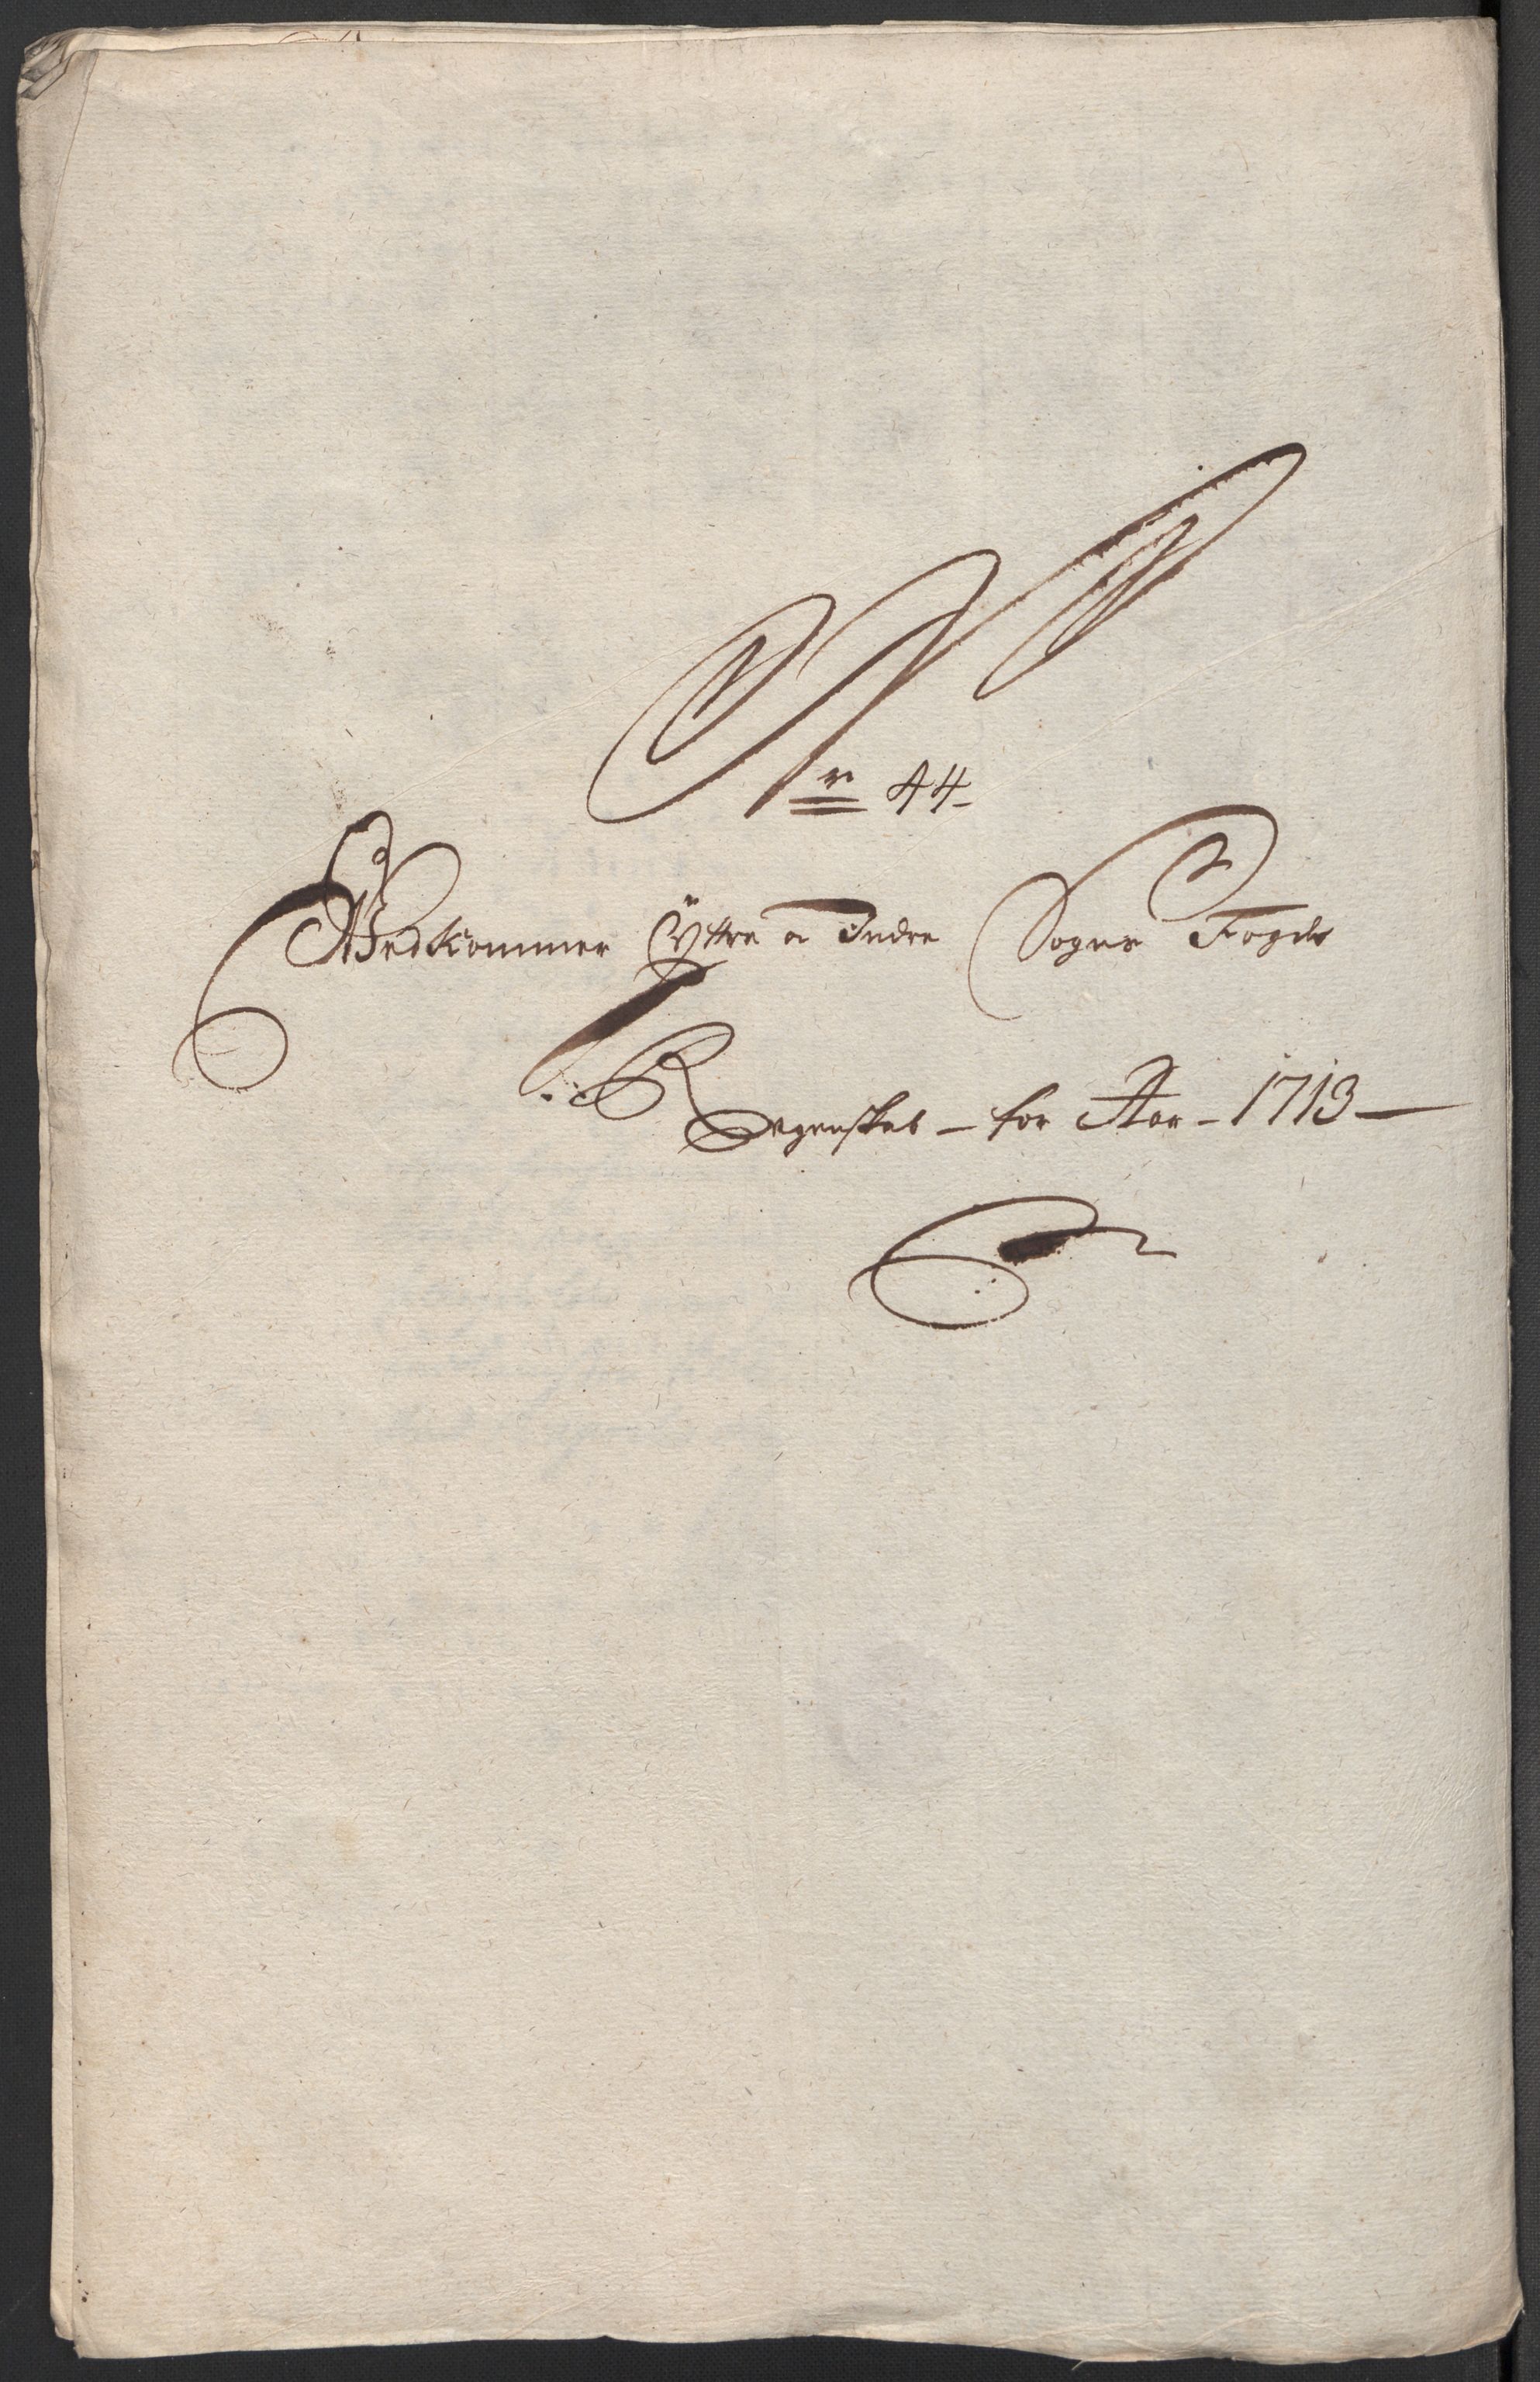 Nr 44
Vedkommer Ÿttre a Indre Sogns Fogdr
Regenskab – for Aar – 1713 –